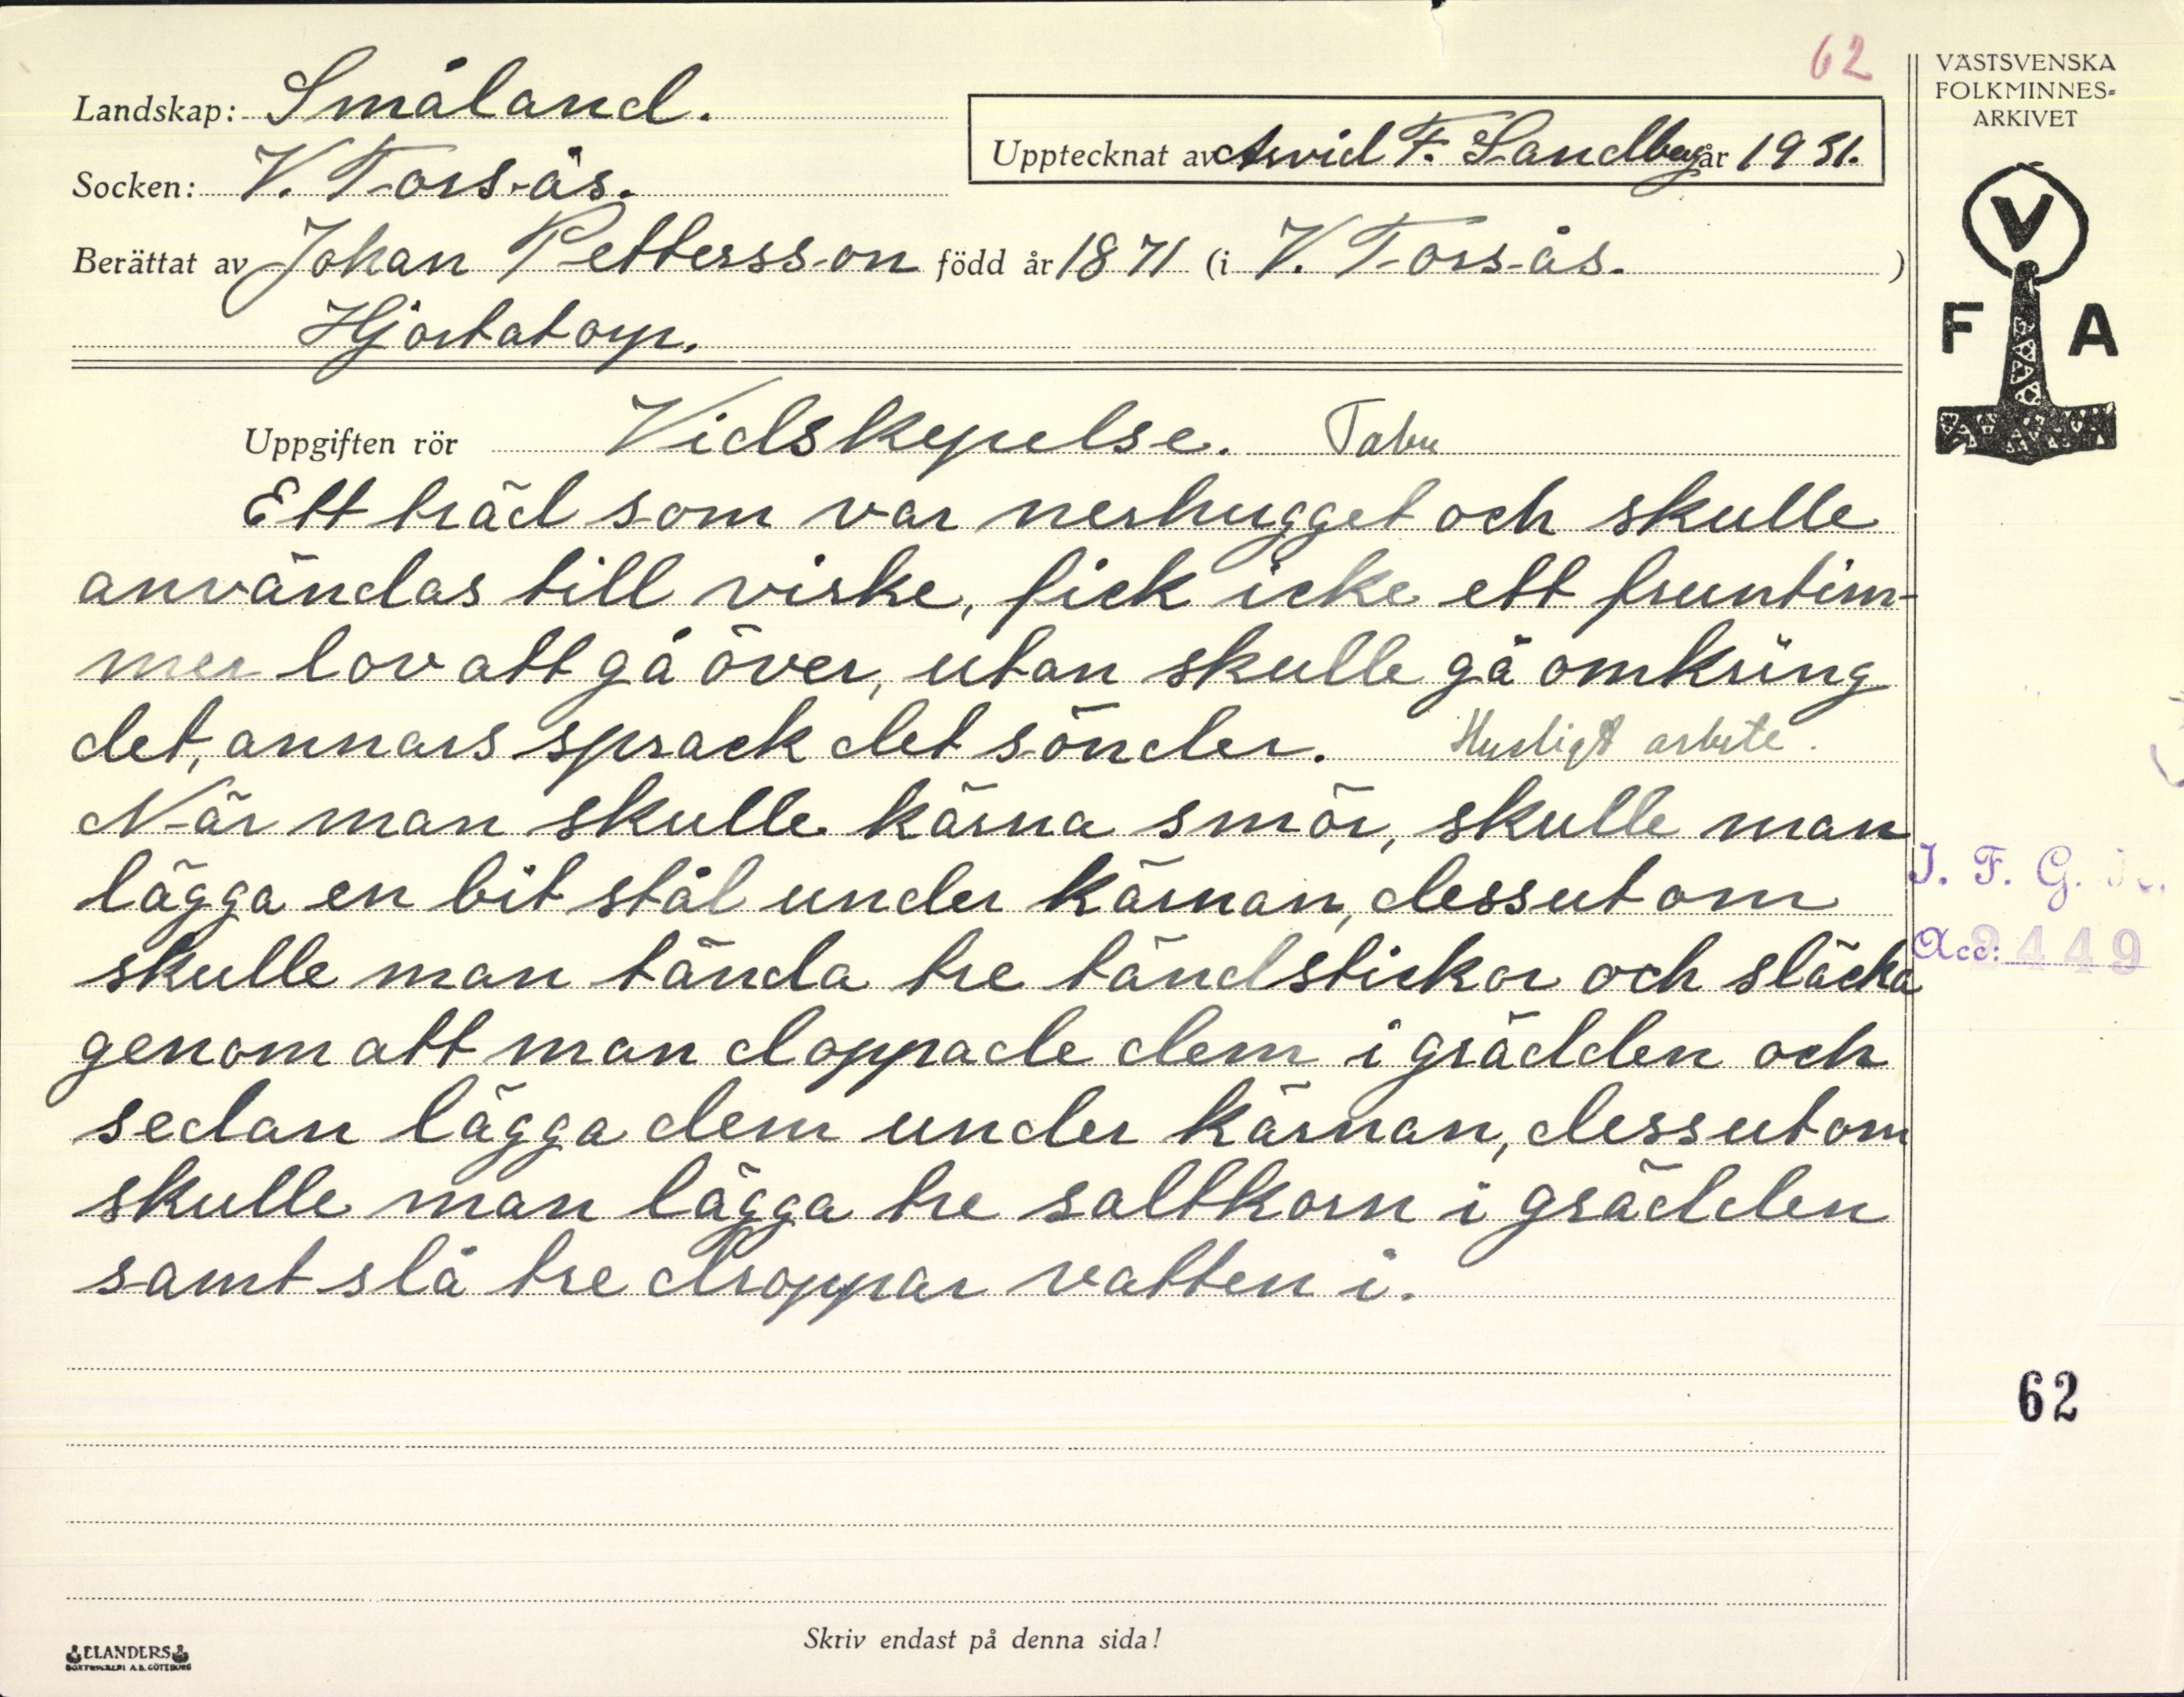 62
Landskap: Småland.
Upptecknat av Arvid F. Sandberg år 1931.
Socken: V. Torsås.
Berättat av Johan Pettersson född år 1871 (i V. Torsås.)
Hjortatorp.
Uppgiften rör Vidskepelse. Tabu
Ett träd som var nerhugget och skulle
användas till virke, fick icke ett fruntim-
mer lov att gå över, utan skulle gå omkring
det, annars sprack det sönder. Husligt arbete.
När man skulle kärna smör, skulle man
lägga en bit stål under kärnan, dessutom
skulle man tända tre tändstickor och släcka
genom att man doppade dem i grädden och
sedan lägga dem under kärnan, dessutom
skulle man lägga tre saltkorn i grädden
samt slå tre droppar vatten i.
Skriv endast på denna sida!
ELANDERS
BOKTRYCKERI A.B. GÖTEBORG
VÄSTSVENSKA
FOLKMINNES-
ARKIVET
V
F A
I. F. G.
Acc: 2449
62